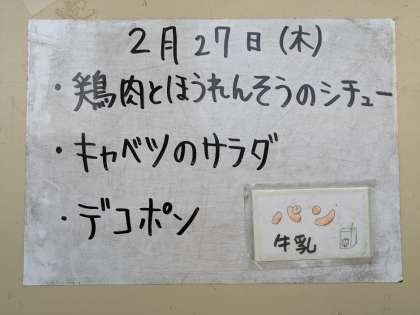 2月27日(木)
・鶏肉とほうれんそうのシチュー
・キャベツのサラダ
・デコポン
パン
牛乳